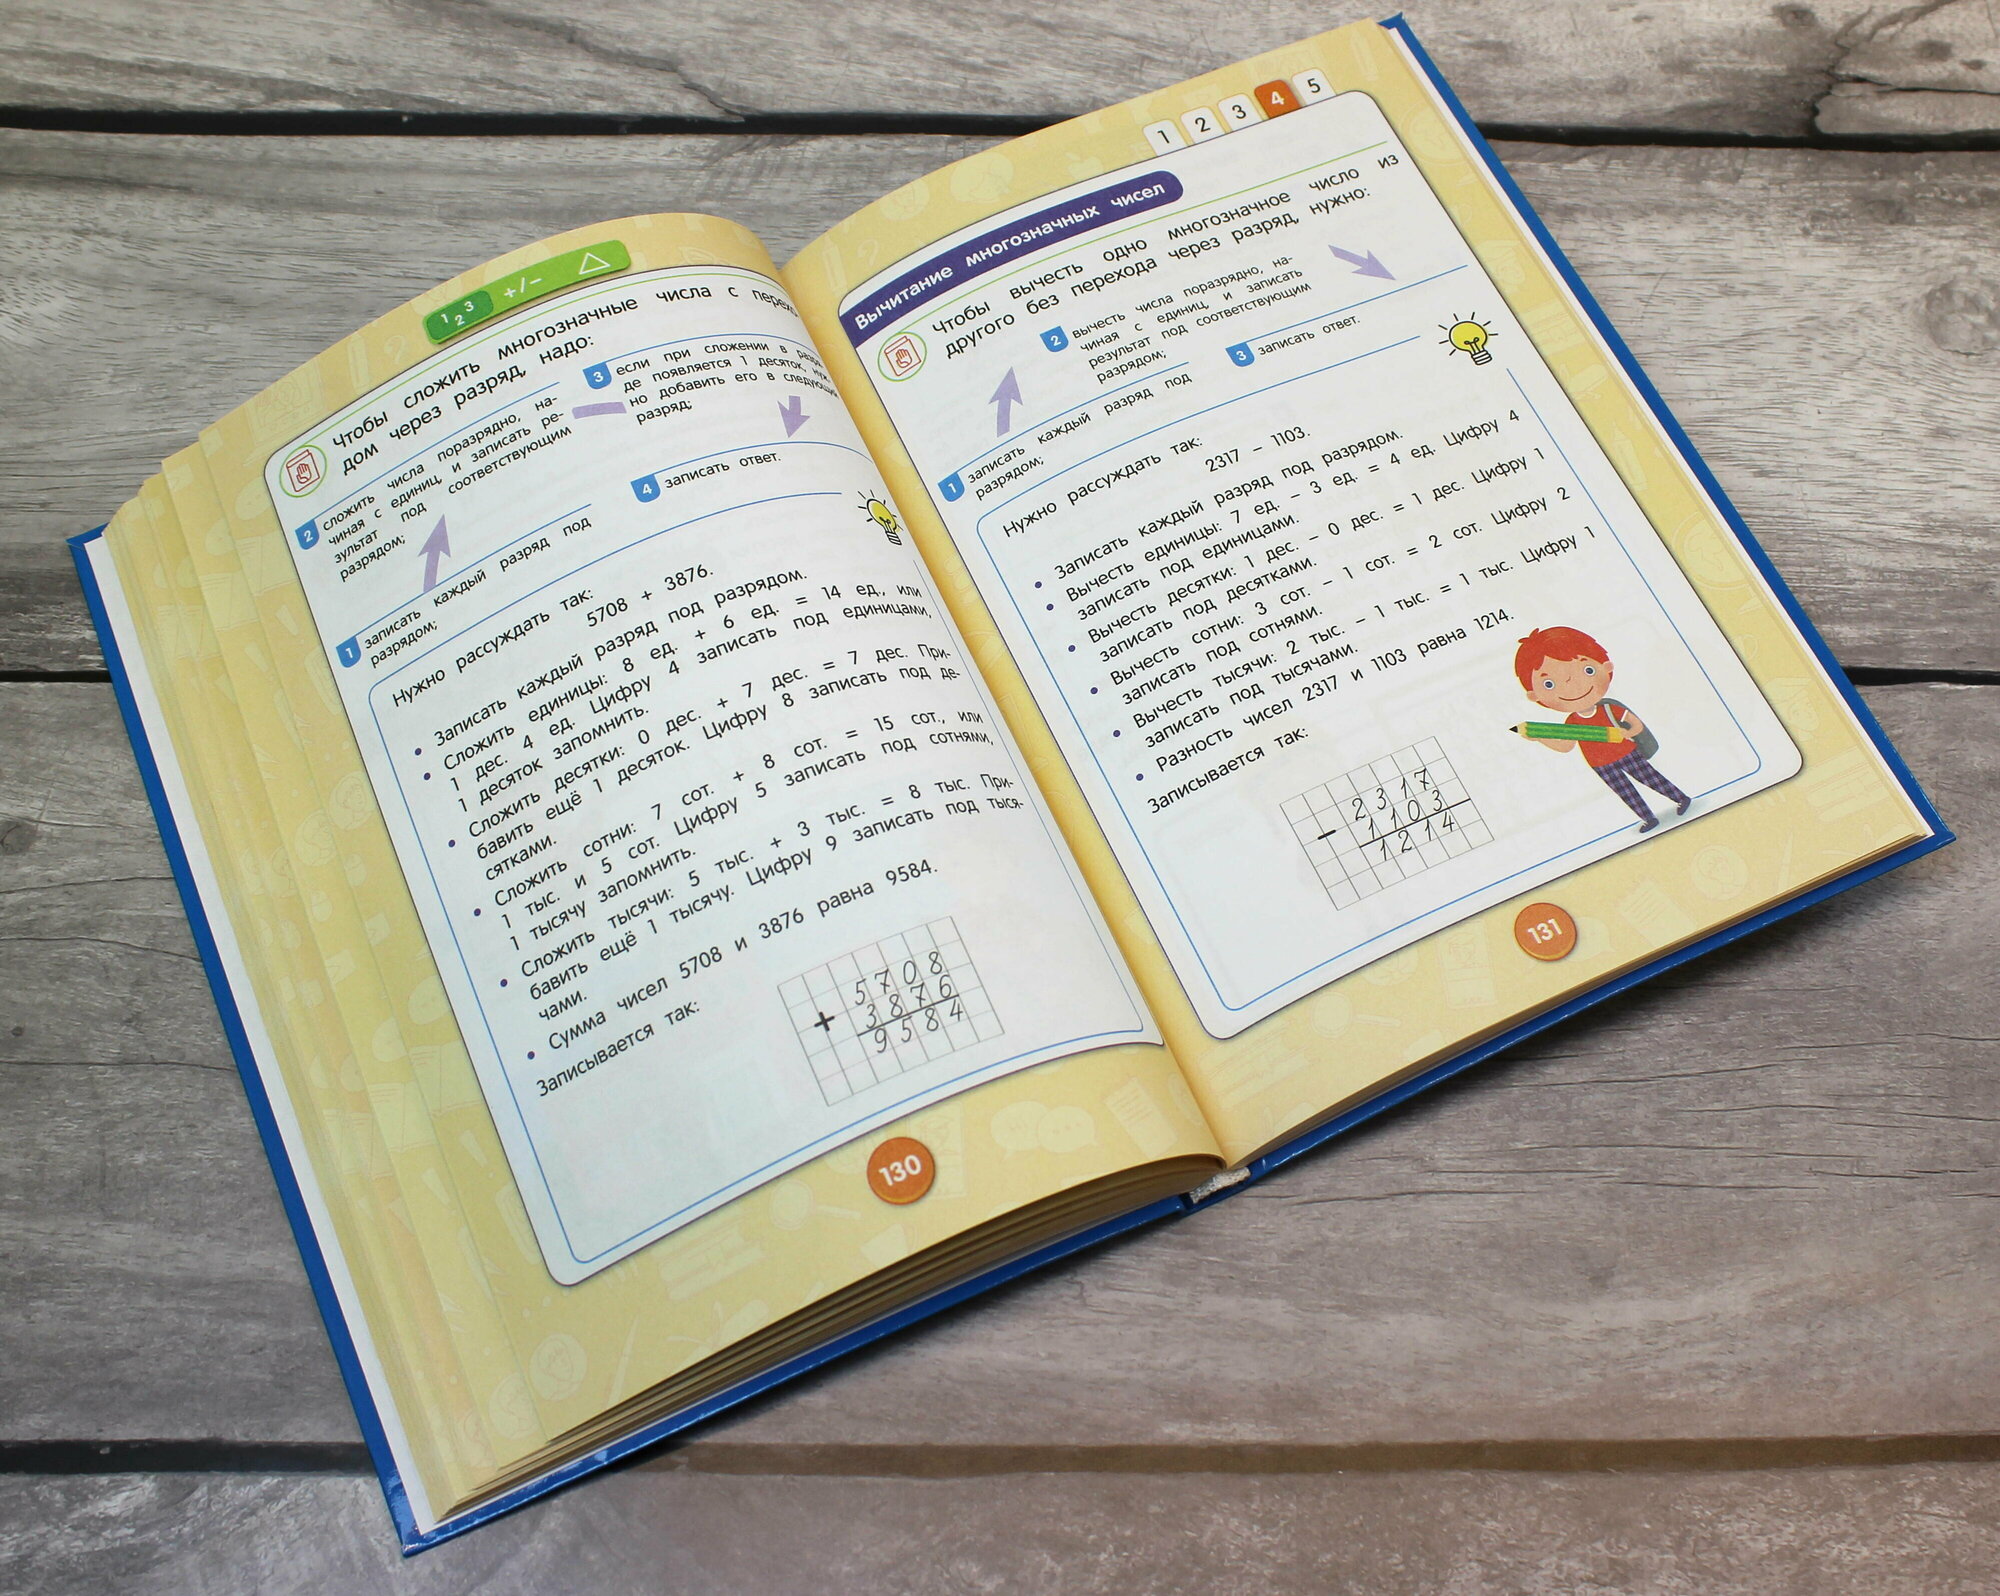 1 2 3 +/–
Чтобы сложить многозначные числа с
дом через разряд, надо:
1 записать каждый разряд под
разрядом;
2 сложить числа поразрядно, на-
чиная с единиц, и записать ре-
зультат под соответствующим
разрядом;
3 если при сложении в
де появляется 1 десяток,
но добавить его в следующий
разряд;
4 записать ответ.
Нужно рассуждать так:
5708 + 3876.
• Записать каждый разряд под разрядом.
• Сложить единицы: 8 ед. + 6 ед. = 14 ед., или
1 дес. 4 ед. Цифру 4 записать под единицами,
1 десяток запомнить.
• Сложить десятки: 0 дес. + 7 дес. = 7 дес. При-
бавить ещё 1 десяток. Цифру 8 записать под де-
сятками.
• Сложить сотни: 7 сот. + 8 сот. = 15 сот., или
1 тыс. и 5 сот. Цифру 5 записать под сотнями,
1 тысячу запомнить.
• Сложить тысячи: 5 тыс. + 3 тыс. = 8 тыс. При-
бавить ещё 1 тысячу. Цифру 9 записать под тыся-
чами.
• Сумма чисел 5708 и 3876 равна 9584.
Записывается так:
5708
+
3876
9584
130
1 2 3 4 5
Вычитание многозначных чисел
Чтобы вычесть одно многозначное число из
другого без перехода через разряд, нужно:
1 записать каждый разряд под
разрядом;
2 вычесть числа поразрядно, на-
чиная с единиц, и записать
результат под соответствующим
разрядом;
3 записать ответ.
Нужно рассуждать так:
2317 – 1103.
• Записать каждый разряд под разрядом.
• Вычесть единицы: 7 ед. – 3 ед. = 4 ед. Цифру 4
записать под единицами.
• Вычесть десятки: 1 дес. – 0 дес. = 1 дес. Цифру 1
записать под десятками.
• Вычесть сотни: 3 сот. – 1 сот. = 2 сот. Цифру 2
записать под сотнями.
• Вычесть тысячи: 2 тыс. – 1 тыс. = 1 тыс. Цифру 1
записать под тысячами.
• Разность чисел 2317 и 1103 равна 1214.
Записывается так:
2317
–
1103
1214
131